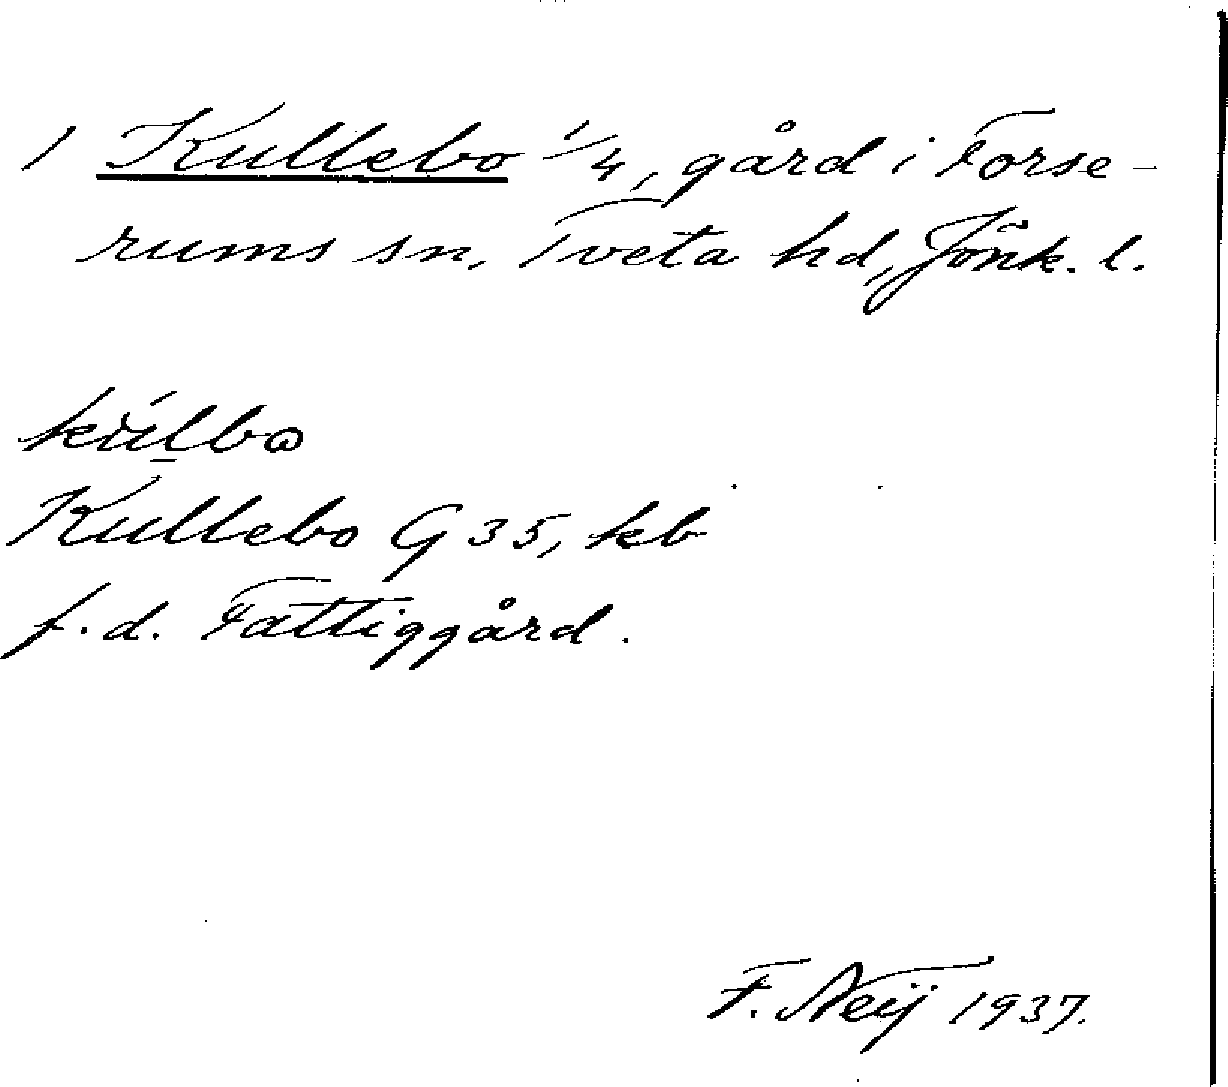 1 Kullebo 1/4, gård i Forse-
rums sn, Tveta hd, Jönk. l.
Kullebo G 35, kb
f.d. Fattiggård.
F. Neij 1937.